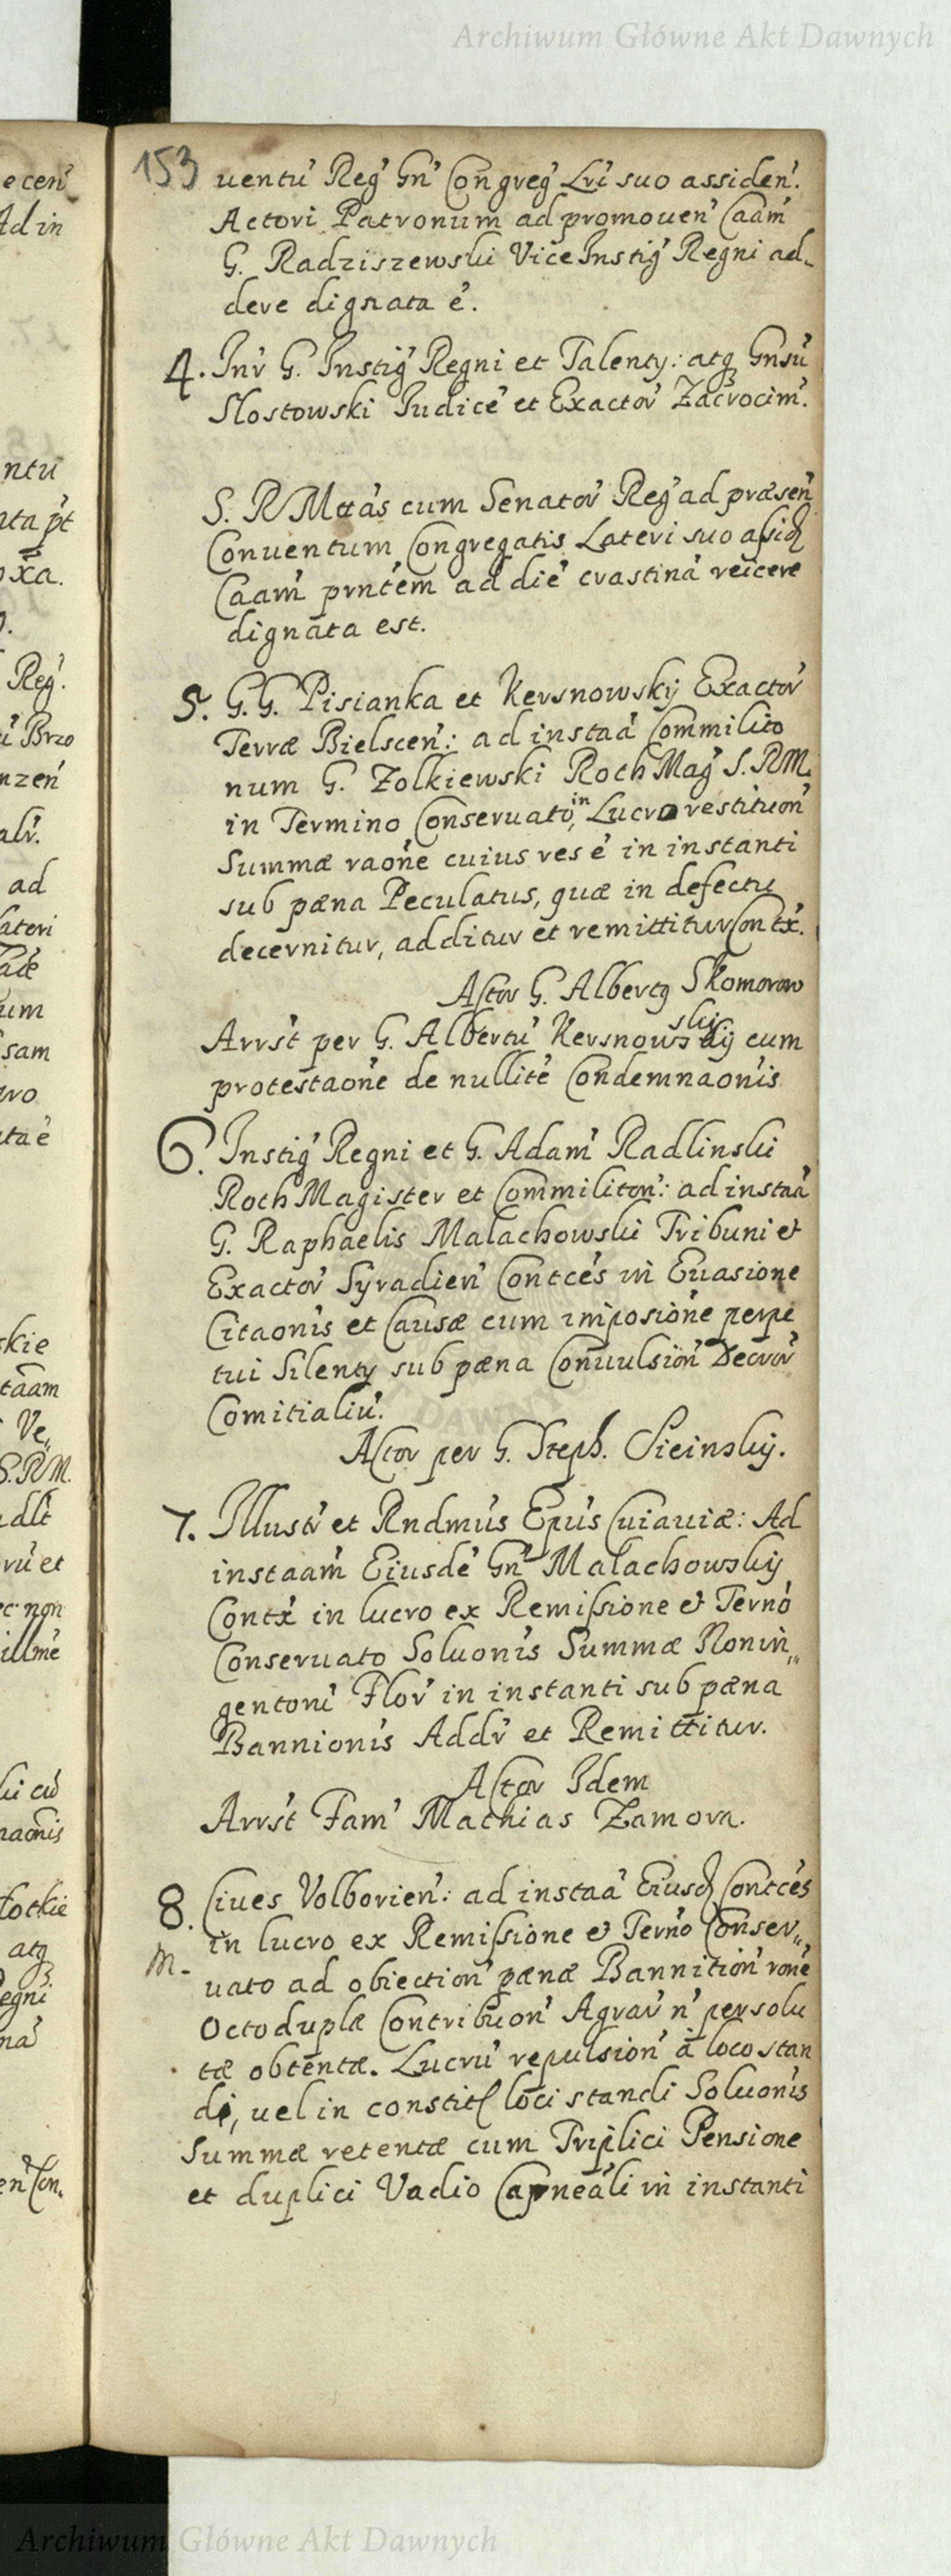 Archiwum Główne Akt Dawnych
153
uentu' Reg' Gn' Congreg' Lri' suo assiden'.
Actori Patronum ad promouen' Caam'
G. Radziszewski Vice Instig' Regni ad-
dere dignata e'.
4. Inr' G. Instig' Regni et Talenty: atq Gnsu'
Slostowski Iudice' et Exactor' Zacrocim'.
S. R Mttas cum Senator' Reg' ad præsen'
Conuentum Congregatis Lateri suo assid
Caam' prntem ad die' crastina' reicere
dignata est.
5. G. G. Pisianka et Kersnowskij Exactor'
Terræ Bielscen': ad instaa' Commilito
num G. Zolkiewski Roth Mag' S. RM.
in Termino Conseruato, in Lucro restituon'
Summæ raone cuius res e' in instanti
sub pæna Peculatus, quæ in defectu
decernitur, additur et remittitur Contx'.
Actor G. Albertg Skomorow
ski
Arrst per G. Albertu' Kersnowskij cum
protestaone de nullite Condemnaonis
6. Instig' Regni et G. Adam' Radlinski
Roth Magister et Commiliton': ad instaa'
G. Raphaelis Malachowski Tribuni et
Exactor' Syradien' Contces in Euasione
Citaonis et Causæ cum imposione perpe
tui Silenty sub pæna Conuulsion' Decror'
Comitialiu'.
Actor per G. Steph. Sieinskij.
7. Illustr' et Rndmus Epus Cuiauiæ: Ad
instaam' Eiusde' Gn' Malachowskij
Contx' in lucro ex Remissione et Terno'
Conseruato Soluonis Summæ Nonin„
gentoru' Flor' in instanti sub pæna
Bannionis Addr' et Remittitur.
Actor Idem
Arrst Fam' Mathias Zamora.
8. Ciues Volborien': ad instaa' Eiusd Contces
in lucro ex Remissione et Terno' Conser„
M-
uato ad obiection' pænæ Bannition' rone
Octoduplæ Contribuon' Agrar' n' persolu
tæ obtentæ. Lucru' repulsion' a loco stan
di, uel in constit loci standi Soluonis
Summæ retentæ cum Triplici Pensione
et duplici Vadio Capneali in instanti
Archiwum Główne Akt Dawnych